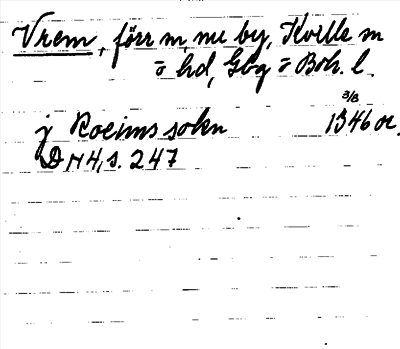 Vrem, förr m, nu by, Kville sn
o hd, Gbg o Boh. l.
3/8
j Roeims sokn 1346 or.
DN 4, s. 247